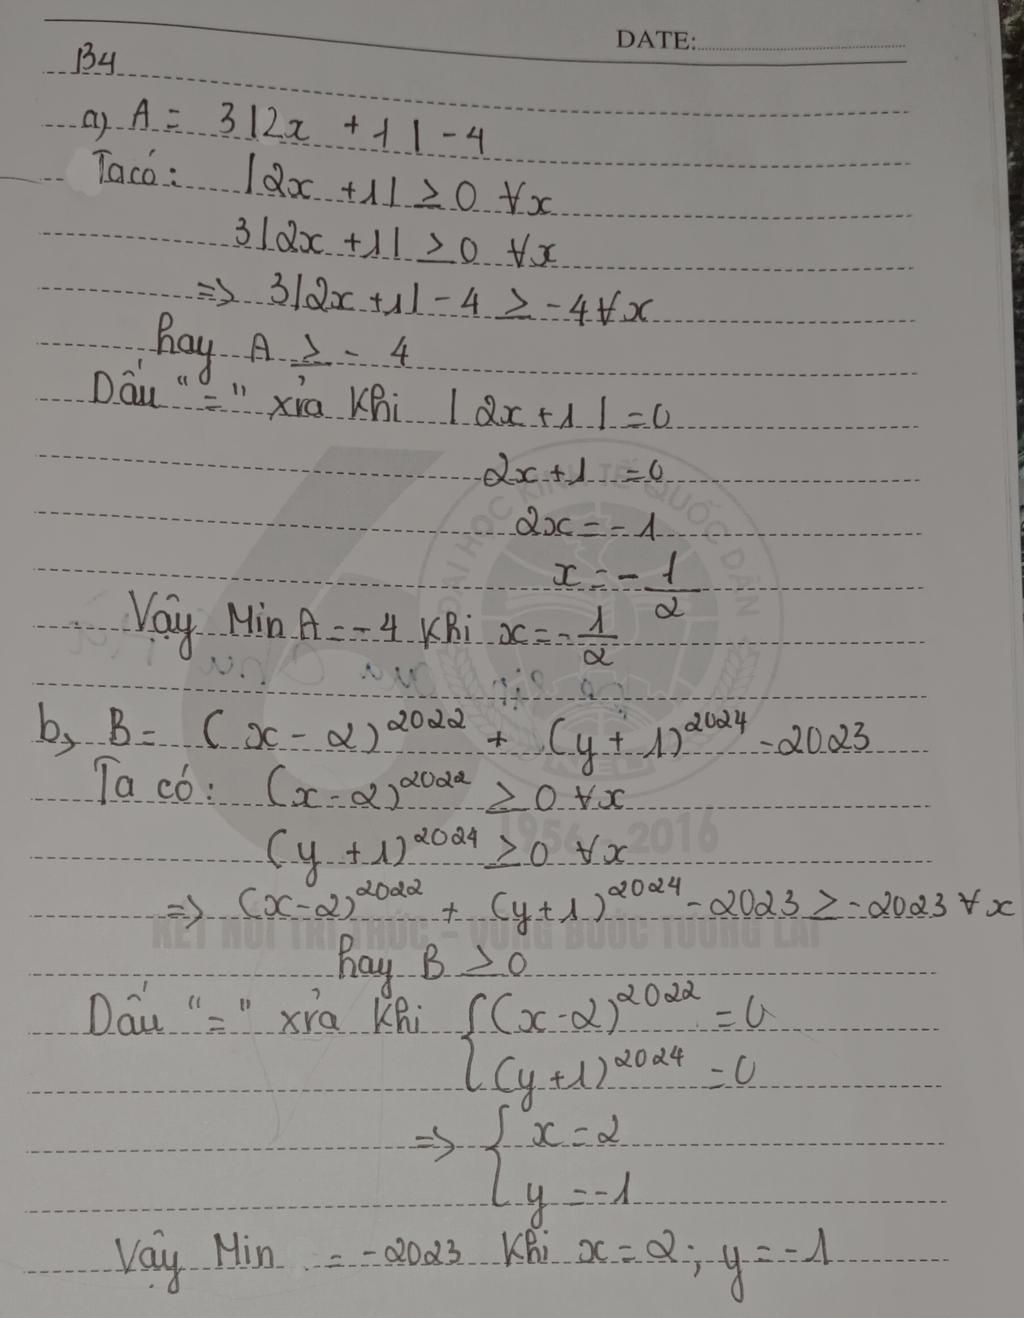 DATE:
B4
a, A = 3|2x + 1| - 4
Ta có: |2x + 1| ≥ 0 ∀x
3|2x + 1| ≥ 0 ∀x
=> 3|2x + 1| - 4 ≥ -4 ∀x
hay A ≥ - 4
Dấu "=" xỷa khi |2x + 1| = 0
2x + 1 = 0
2x = -1
x = -1/2
Vậy Min A = -4 khi x = -1/2
b, B = (x - 2)^2022 + (y + 1)^2024 - 2023
Ta có: (x - 2)^2022 ≥ 0 ∀x
(y + 1)^2024 ≥ 0 ∀x
=> (x - 2)^2022 + (y + 1)^2024 - 2023 ≥ -2023 ∀x
hay B ≥ 0
Dấu "=" xỷa khi { (x - 2)^2022 = 0
(y + 1)^2024 = 0
=> { x = 2
y = -1
Vậy Min = -2023 khi x = 2; y = -1
ĐẠI HỌC KINH TẾ QUỐC DÂN
NEU
1956 - 2016
KẾT NỐI TRI THỨC - VỮNG BƯỚC TƯƠNG LAI